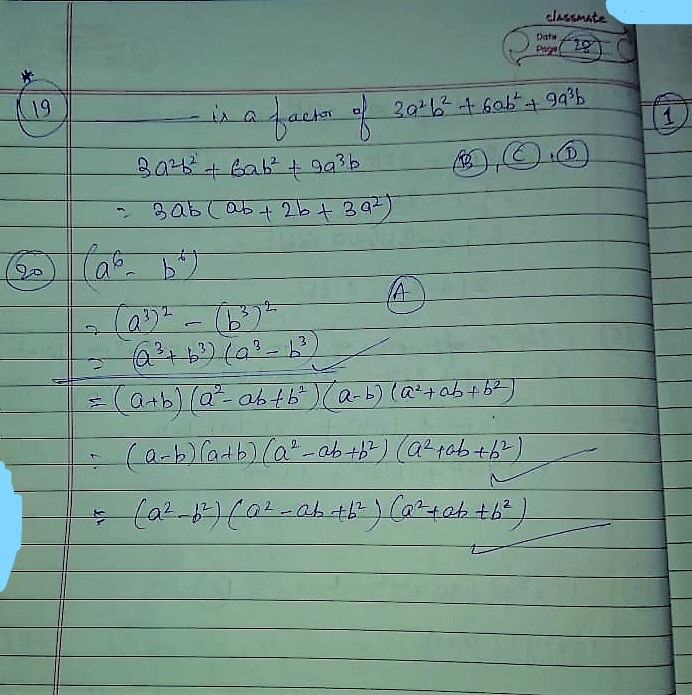 classmate
Date
Page 28
* 19 ______ is a factor of 3a²b² + 6ab² + 9a³b
1
3a²b² + 6ab² + 9a³b B, C, D
= 3ab(ab + 2b + 3a²)
20 (a⁶ - b⁶)
= (a³)² - (b³)² A
= (a³ + b³)(a³ - b³) ✓
= (a+b)(a² - ab + b²)(a-b)(a² + ab + b²)
= (a-b)(a+b)(a² - ab + b²)(a² + ab + b²) ✓
= (a² - b²)(a² - ab + b²)(a² + ab + b²) ✓